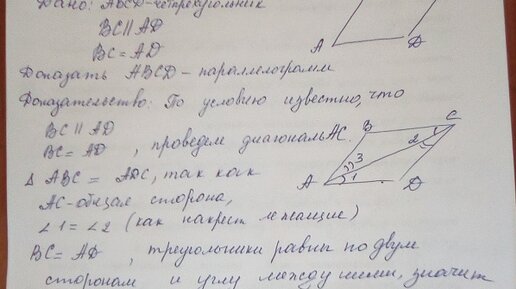 Дано: ABCD-четырехугольник
BC || AD
BC = AD
A D
Доказать ABCD - параллелограмм
Доказательство: По условию известно, что
BC || AD
BC = AD, проведем диагональ AC.
B C
2
3
A 1 D
Δ ABC = ADC, так как
AC - общая сторона,
∠1 = ∠2 (как накрест лежащие)
BC = AD, треугольники равны по двум
сторонам и углу между ними, значит